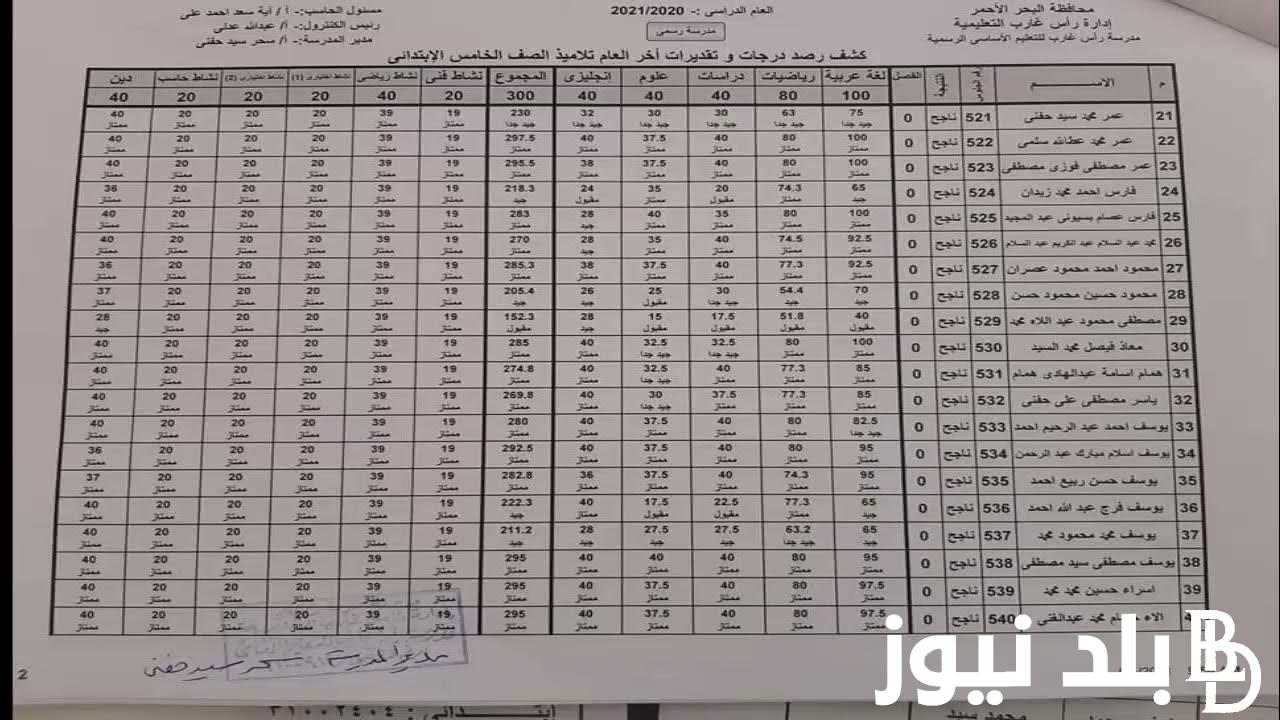 محافظة البحر الأحمر
إدارة رأس غارب التعليمية
مدرسة رأس غارب للتعليم الأساسى الرسمية
العام الدراسى :- 2021/2020
مدرسة رسمى
مسئول الحاسب:- أ / آية سعد احمد على
رئيس الكنترول:- أ/ عبدالله عدلى
مدير المدرسة:- أ/ سحر سيد حفنى
كشف رصد درجات و تقديرات أخر العام تلاميذ الصف الخامس الإبتدائى
م الاســـــم رقم الجلوس النتيجة الفصل لغة عربية رياضيات دراسات علوم إنجليزى المجموع نشاط فنى نشاط رياضى نشاط اختيارى (1) نشاط اختيارى (2) نشاط حاسب دين
100 80 40 40 40 300 20 40 20 20 20 40
21 عمر محمد سيد حفنى 521 ناجح 0 75 63 30 30 32 230 19 39 20 20 20 40
جيد جدا جيد جدا جيد جدا جيد جدا جيد جدا جيد جدا ممتاز ممتاز ممتاز ممتاز ممتاز ممتاز
22 عمر محمد عطالله سلمى 522 ناجح 0 100 80 40 37.5 40 297.5 19 39 20 20 20 40
ممتاز ممتاز ممتاز ممتاز ممتاز ممتاز ممتاز ممتاز ممتاز ممتاز ممتاز ممتاز
23 عمر مصطفى فوزى مصطفى 523 ناجح 0 100 80 40 37.5 38 295.5 19 39 20 20 20 40
ممتاز ممتاز ممتاز ممتاز ممتاز ممتاز ممتاز ممتاز ممتاز ممتاز ممتاز ممتاز
24 فارس احمد محمد زيدان 524 ناجح 0 65 74.3 20 35 24 218.3 19 39 20 20 20 36
جيد ممتاز مقبول ممتاز مقبول جيد ممتاز ممتاز ممتاز ممتاز ممتاز ممتاز
25 فارس عصام بسيونى عبد المجيد 525 ناجح 0 100 80 35 40 28 283 19 39 20 20 20 40
ممتاز ممتاز ممتاز ممتاز جيد ممتاز ممتاز ممتاز ممتاز ممتاز ممتاز ممتاز
26 محمد عبد السلام عبد الكريم عبد السلام 526 ناجح 0 92.5 74.5 40 35 28 270 19 39 20 20 20 40
ممتاز ممتاز ممتاز ممتاز جيد ممتاز ممتاز ممتاز ممتاز ممتاز ممتاز ممتاز
27 محمود احمد محمود عصران 527 ناجح 0 92.5 77.3 40 37.5 38 285.3 19 39 20 20 20 36
ممتاز ممتاز ممتاز ممتاز ممتاز ممتاز ممتاز ممتاز ممتاز ممتاز ممتاز ممتاز
28 محمود حسين محمود حسن 528 ناجح 0 70 54.4 30 25 26 205.4 19 39 20 20 20 37
جيد جيد جيد جدا مقبول جيد جيد ممتاز ممتاز ممتاز ممتاز ممتاز ممتاز
29 مصطفى محمود عبد اللاه محمد 529 ناجح 0 40 51.8 17.5 15 28 152.3 19 39 20 20 20 28
مقبول جيد مقبول مقبول جيد مقبول ممتاز ممتاز ممتاز ممتاز ممتاز جيد
30 معاذ فيصل محمد السيد 530 ناجح 0 100 80 32.5 32.5 40 285 19 39 20 20 20 40
ممتاز ممتاز جيد جدا جيد جدا ممتاز ممتاز ممتاز ممتاز ممتاز ممتاز ممتاز ممتاز
31 همام اسامة عبدالهادى همام 531 ناجح 0 85 77.3 40 32.5 40 274.8 19 39 20 20 20 40
ممتاز ممتاز ممتاز جيد جدا ممتاز ممتاز ممتاز ممتاز ممتاز ممتاز ممتاز ممتاز
32 ياسر مصطفى على حفنى 532 ناجح 0 85 77.3 37.5 30 40 269.8 19 39 20 20 20 40
ممتاز ممتاز ممتاز جيد جدا ممتاز ممتاز ممتاز ممتاز ممتاز ممتاز ممتاز ممتاز
33 يوسف احمد عبد الرحيم احمد 533 ناجح 0 82.5 80 40 37.5 40 280 19 39 20 20 20 40
جيد جدا ممتاز ممتاز ممتاز ممتاز ممتاز ممتاز ممتاز ممتاز ممتاز ممتاز ممتاز
34 يوسف اسلام مبارك عبد الرحمن 534 ناجح 0 95 80 40 37.5 40 292.5 19 39 20 20 20 36
ممتاز ممتاز ممتاز ممتاز ممتاز ممتاز ممتاز ممتاز ممتاز ممتاز ممتاز ممتاز
35 يوسف حسن ربيع احمد 535 ناجح 0 95 74.3 40 37.5 36 282.8 19 39 20 20 20 37
ممتاز ممتاز ممتاز ممتاز ممتاز ممتاز ممتاز ممتاز ممتاز ممتاز ممتاز ممتاز
36 يوسف فرج عبد الله احمد 536 ناجح 0 65 77.3 22.5 17.5 40 222.3 19 39 20 20 20 40
جيد ممتاز مقبول مقبول ممتاز جيد ممتاز ممتاز ممتاز ممتاز ممتاز ممتاز
37 يوسف محمد محمود محمد 537 ناجح 0 65 63.2 27.5 27.5 28 211.2 19 39 20 20 20 40
جيد جيد جدا جيد جيد جيد جيد ممتاز ممتاز ممتاز ممتاز ممتاز ممتاز
38 يوسف مصطفى سيد مصطفى 538 ناجح 0 95 80 40 40 40 295 19 39 20 20 20 40
ممتاز ممتاز ممتاز ممتاز ممتاز ممتاز ممتاز ممتاز ممتاز ممتاز ممتاز ممتاز
39 اسراء حسين محمد محمد 539 ناجح 0 97.5 80 40 37.5 40 295 19 39 20 20 20 40
ممتاز ممتاز ممتاز ممتاز ممتاز ممتاز ممتاز ممتاز ممتاز ممتاز ممتاز ممتاز
الاء محمد عبدالغنى 540 ناجح 0 97.5 80 40 37.5 40 295 19 39 20 20 20 40
ممتاز ممتاز ممتاز ممتاز ممتاز ممتاز ممتاز ممتاز ممتاز ممتاز ممتاز ممتاز
مدير المدرسة سحر سيد حفنى
2
بلد نيوز
محمد سيد
إبتدائى : ٣١٠٠٢٤٠٤